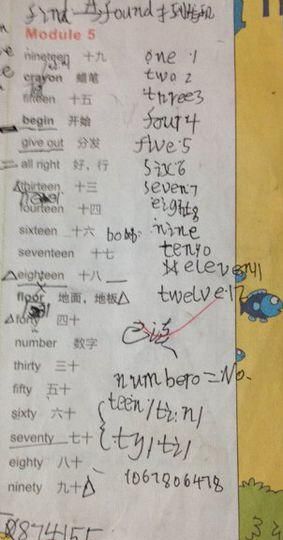 find → found 找到
Module 5
nineteen 十九 one 1
crayon 蜡笔 two 2
fifteen 十五 three3
begin 开始 four4
give out 分发 five·5
all right 好，行 six6
thirteen 十三 seven7
fourteen 十四 eight8
sixteen 十六 nine
seventeen 十七 ten10
eighteen 十八 eleven11
floor 地面，地板 twelve·12
forty 四十
已读
number 数字
thirty 三十 number=No.
fifty 五十 teen/ti:n/
sixty 六十
seventy 七十 ty/ti/
eighty 八十 1067806478
ninety 九十